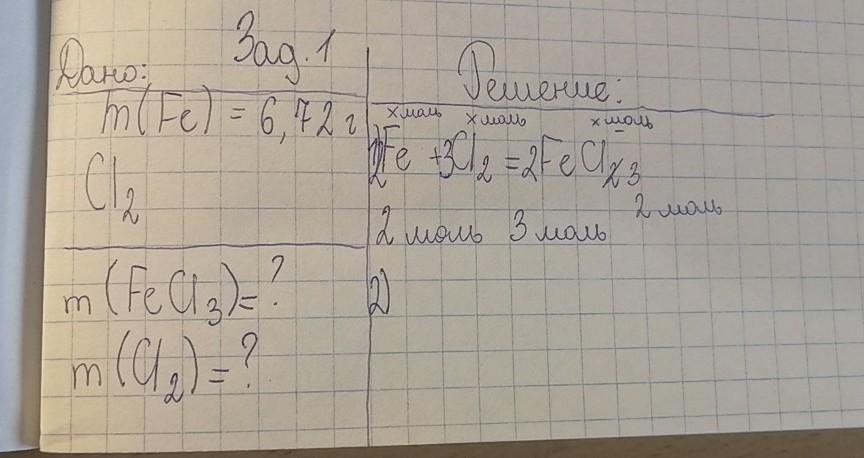 Зад. 1
Дано:
m(Fe) = 6,72 г
Cl₂
m(FeCl₃)=?
m(Cl₂)=?
Решение:
x моль x моль x моль
1) 2Fe + 3Cl₂ = 2FeCl₃
2 моль 3 моль 2 моль
2)